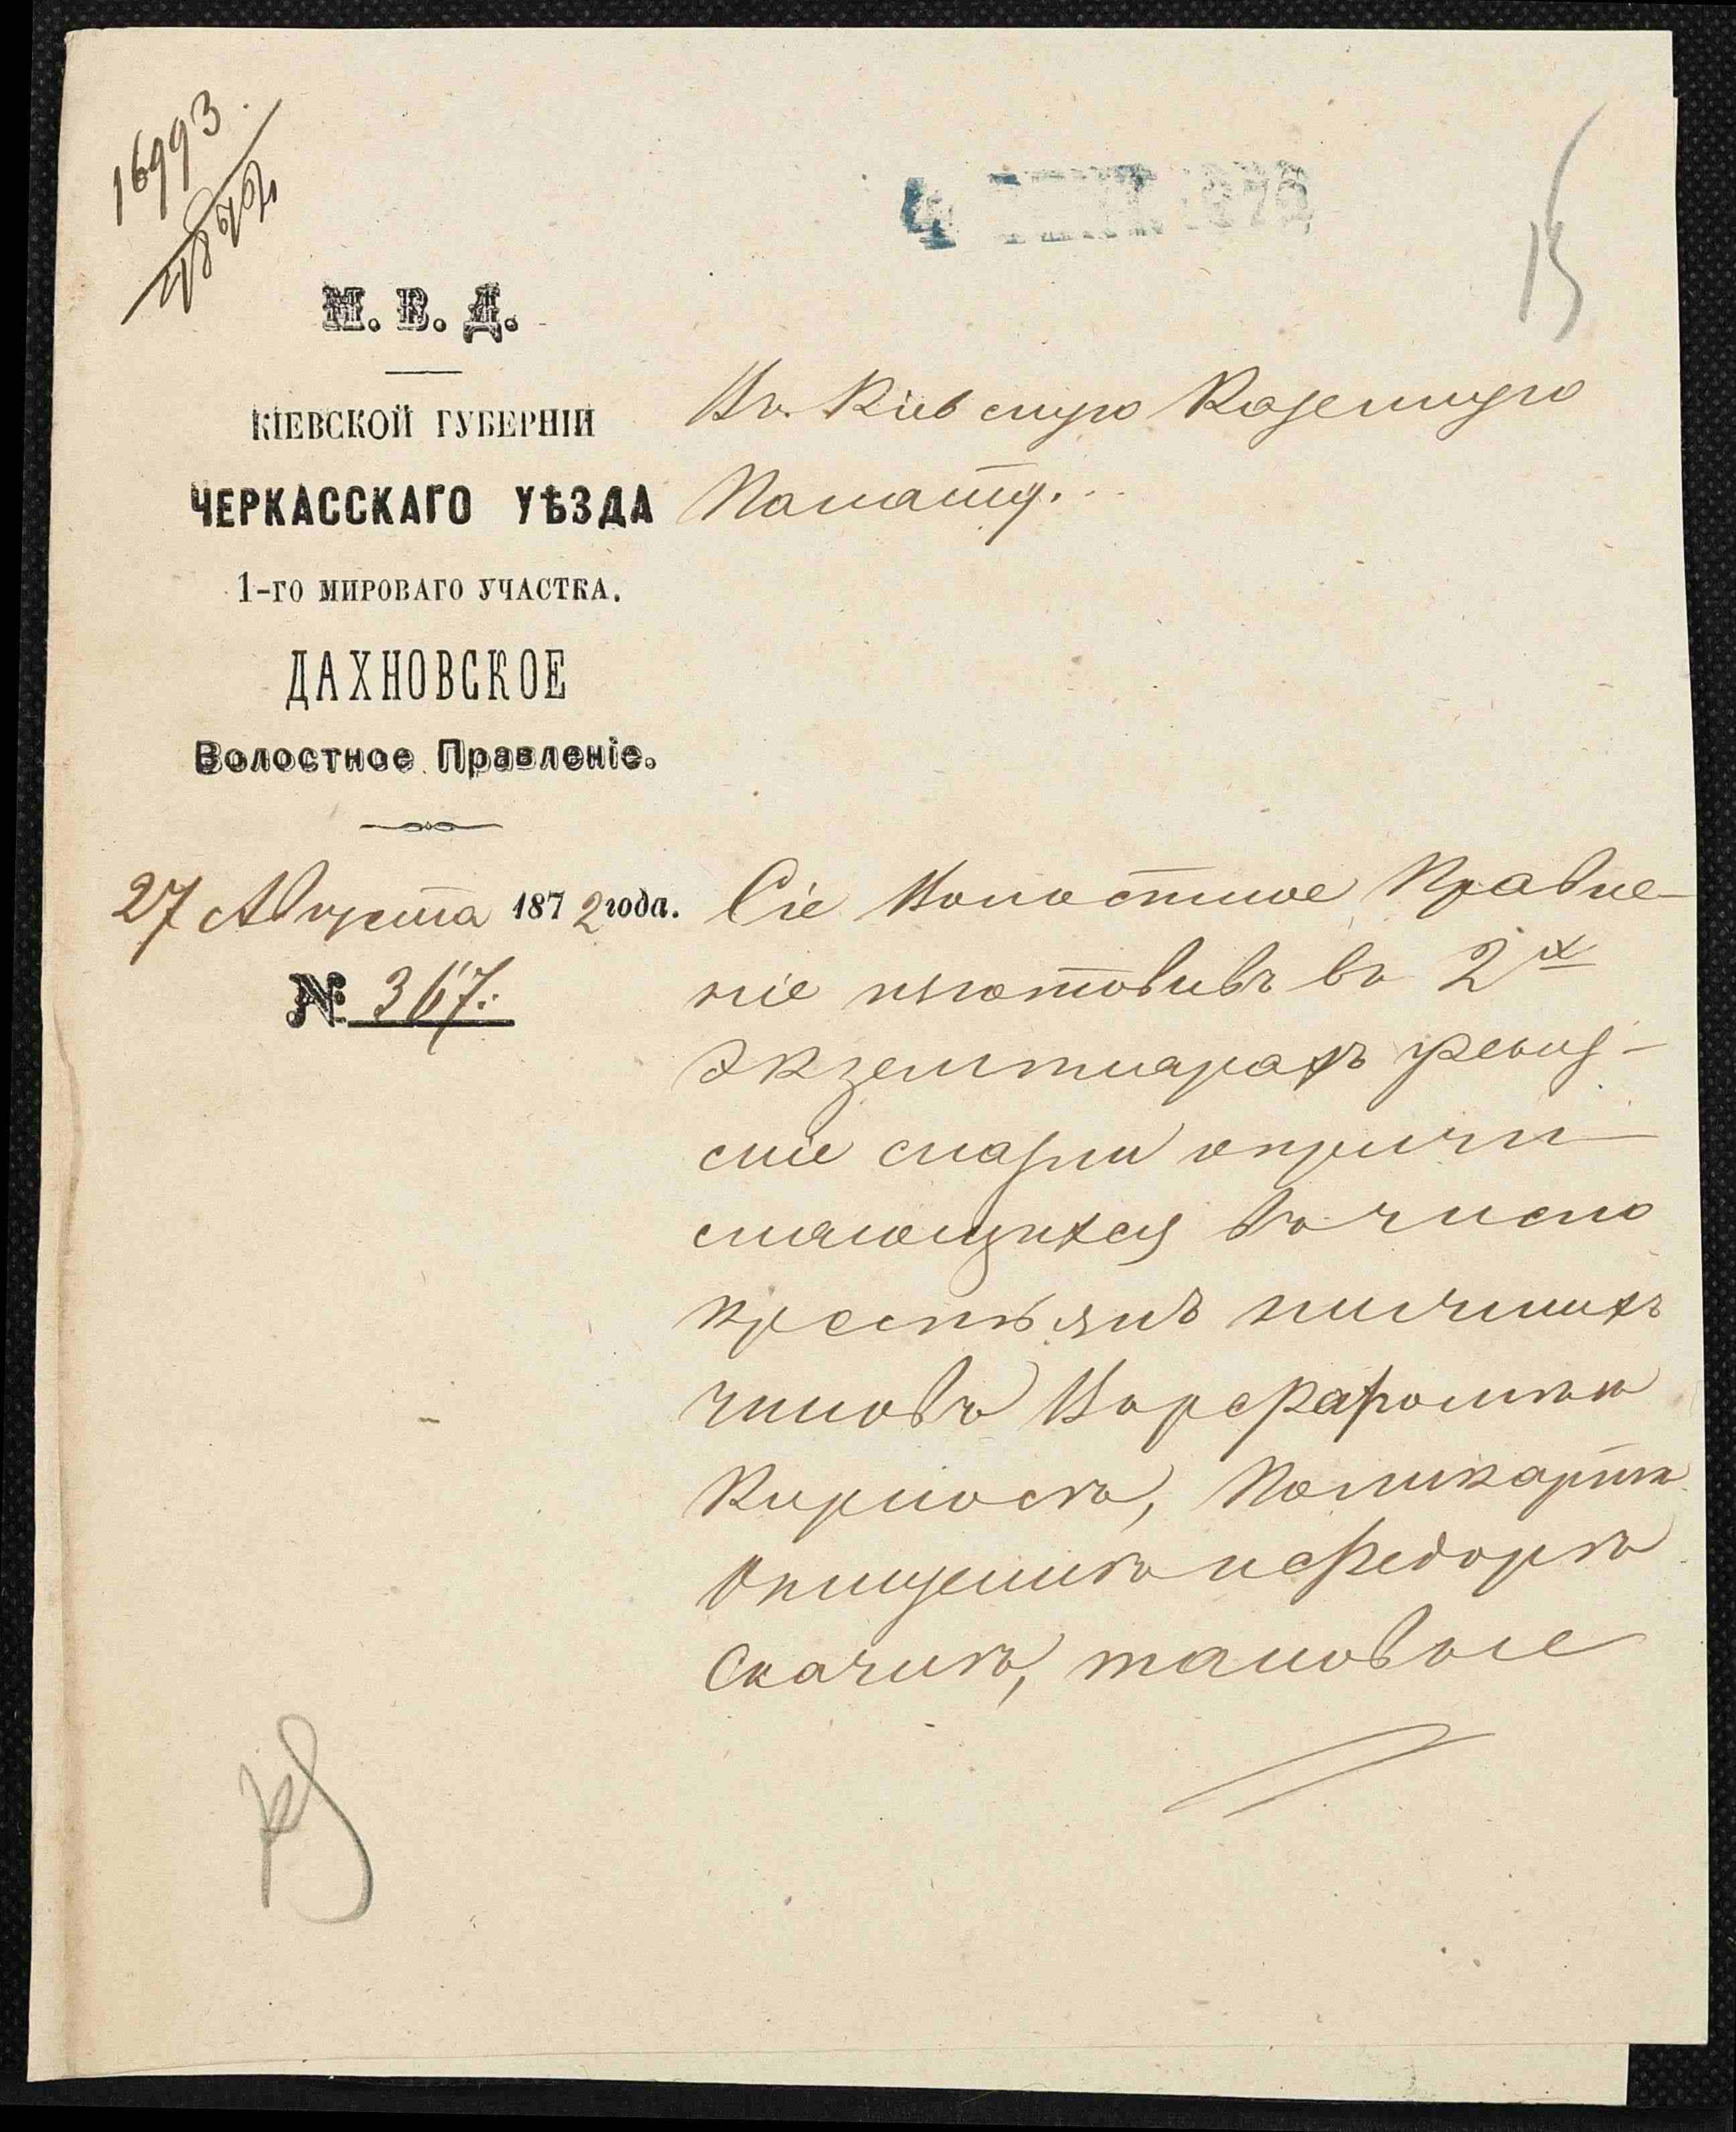 16993
1872
4 СЕНТ. 1872
15
М. В. Д.
КІЕВСКОЙ ГУБЕРНІИ
ЧЕРКАССКАГО УѢЗДА
1-ГО МИРОВАГО УЧАСТКА.
ДАХНОВСКОЕ
Волостное Правленіе.
27 Августа 1872 года.
№ 367.
Въ Кіевскую Казенную
Палату.
Сіе Волостное Правле-
ніе изготовивъ въ 2х
экземплярахъ ревиз-
скіе сказки о причи-
сляющихся въ число
крестьянъ нижнихъ
чиновъ Варфаломея
Поликарпа
и Федора
таковые